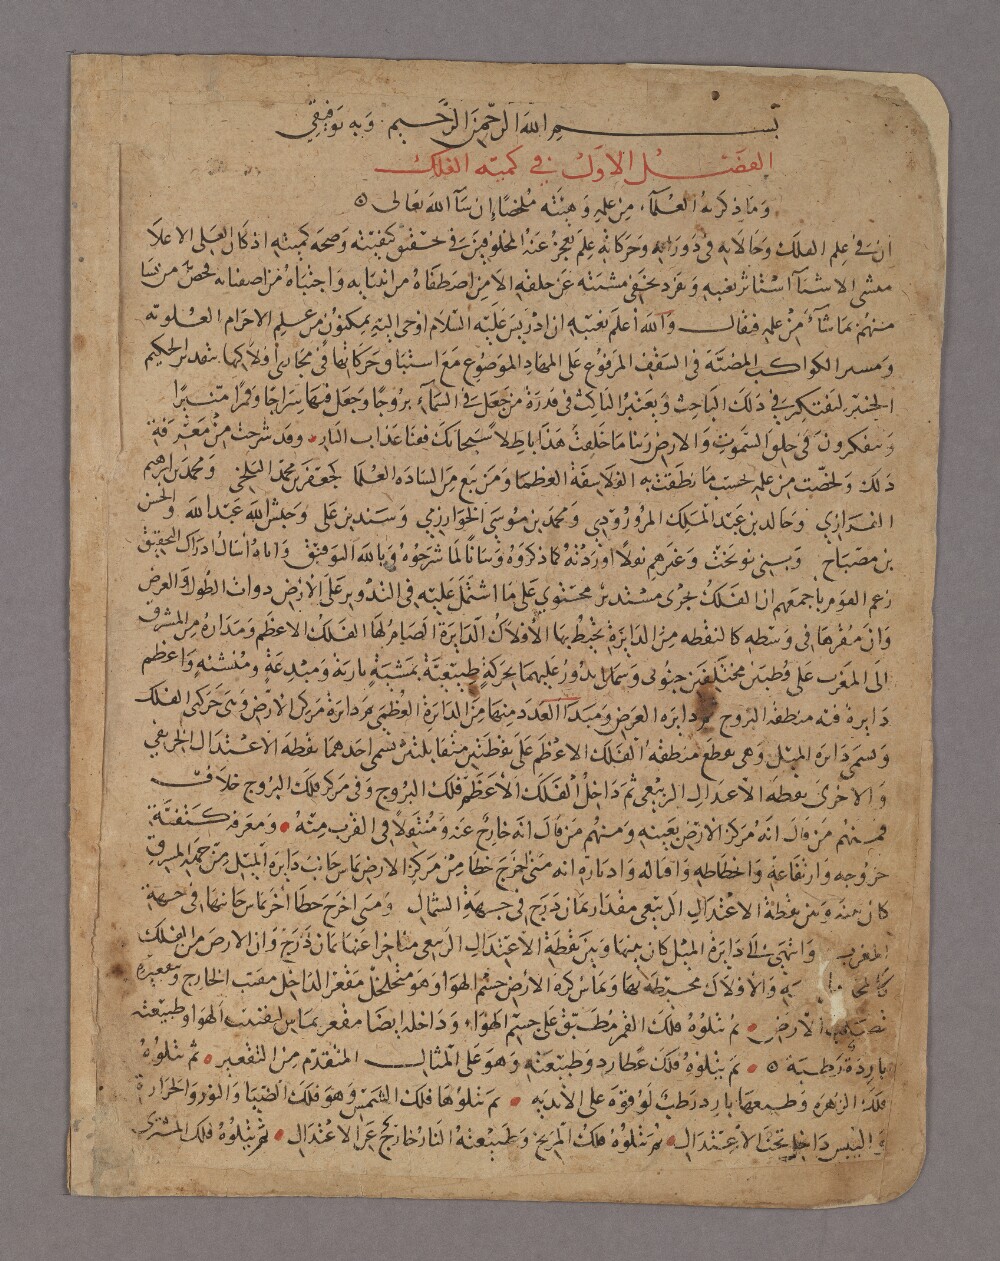 بسم الله الرحمن الرحيم وبه توفيقي
الفصل الاول في كمية الفلك
وما ذكرته العلماء من علمه وهيئته ملخصا إن شاء الله تعالى
ان في علم الفلك وحالاته في دورانه وحركاته علم يعجز عنه المخلوقين في حقيقة كيفيته وصحة كميته اذ كان العلي الاعلا
منشي الاشيا استاثر بغيبه وتفرد بخفي مشيته عن خلقه الا من اصطفاه من انبيائه واجتباه من اصفيائه فخص من شا
منهم بما شاء من علمه فقال والله أعلم بغيبه ان ادريس عليه السلام اوحى اليه بمكنون من علم الاجرام العلوية
ومسير الكواكب المضيئة في السقف المرفوع على المهاد الموضوع مع استباق حركاتها في مجاري أفلاكها بتقدير الحكيم
الخبير ليفتكر في ذلك الباحث ويعتبر الماكث في قدرة من جعل في السماء بروجا وجعل فيها سراجا وقمرا منيرا
ويتفكرون في خلق السموت والارض ربنا ما خلقت هذا باطلا سبحانك فقنا عذاب النار وقد شرحت من معرفة
ذلك ولخصت من علمه حسب ما نطقت به الفلاسفة العظما ومن تبع من الساده العلما كجعفر بن محمد البلخي ومحمد بن ابرهيم
الفزازي وخالد بن عبد الملك المروزوذي ومحمد بن موسى الخوارزمي وسند بن علي وحبش الله عبد الله والحسن
بن مصباح وبني نوبخت وغيرهم قولا اوردته كما ذكروه وبيانا لما شرحوه وبالله التوفيق واياه أسال ادراك التحقيق
زعم القوم باجمعهم ان الفلك جرى مستدير محتوي على ما اشتمل عليه في التدوير على الأرض ذوات الطول والعرض
وان مقرها في وسطه كالنقطه من الدايرة يحيط بها الأفلاك الدايرة الصام لها الفلك الاعظم ومداره من المشرق
الى المغرب على قطبين مختلفين جنوبي وشمالي يدور عليهما بحركة طبيعية بمشية باريه ومبدعه ومنشئه واعظم
دايرة فيه منطقة البروج ثم دايره العرض ومبدا العدد منها من الدايرة العظمى ثم دايرة مركز الارض وهي حركي الفلك
وتسمى دايره الميل وهي تقطع منطقه الفلك الاعظم على نقطتين متقابلتين تسمى احدهما نقطة الاعتدال الخريفي
والاخرى نقطة الاعتدال الربيعي ثم داخل الفلك الأعظم فلك البروج وفي مركز فلك البروج خلاف
فمنهم من قال انه مركز الارض بعينه ومنهم من قال انه خارج عنه ومنتقلا في القرب منه ومعرفة كيفية
خروجه وارتفاعه وانحطاطه واقباله وادباره انه متى اخرج خطا من مركز الارض يماس جانب دايرة الميل من جهة المشرق
كان بينه وبين نقطة الاعتدال الربيعي مقدار ثمان درج في جهة الشمال ومتى اخرج خطا اخر يماس جانبها في جهة
المغرب وانتهى الى دايرة الميل كان بينها وبين نقطة الاعتدال الربيعي متاخرا عنها ثمان درج وان الارض من الفلك
والأفلاك محيطة بها ويماس كرة الارض جسم الهوا وهو متخلخل مقعر الداخل مقبب الخارج
الارض ثم يتلوه فلك القمر مطبق على جسم الهواء وداخله ايضا مقعر يماس لتقبب الهوا وطبيعته
باردة رطبة ثم يتلوه فلك عطارد وطبيعته وهو على المثال المتقدم من التقعير ثم يتلوه
فلك الزهره وطبعها بارد رطب لوقوفه على الاندية ثم يتلوها فلك الشمس وهو فلك الضيا والنور والحرارة
واليبس داخل تحت الاعتدال ثم يتلوه فلك المريخ وطبيعته النار خارج عن الاعتدال ثم يتلوه فلك المشترى